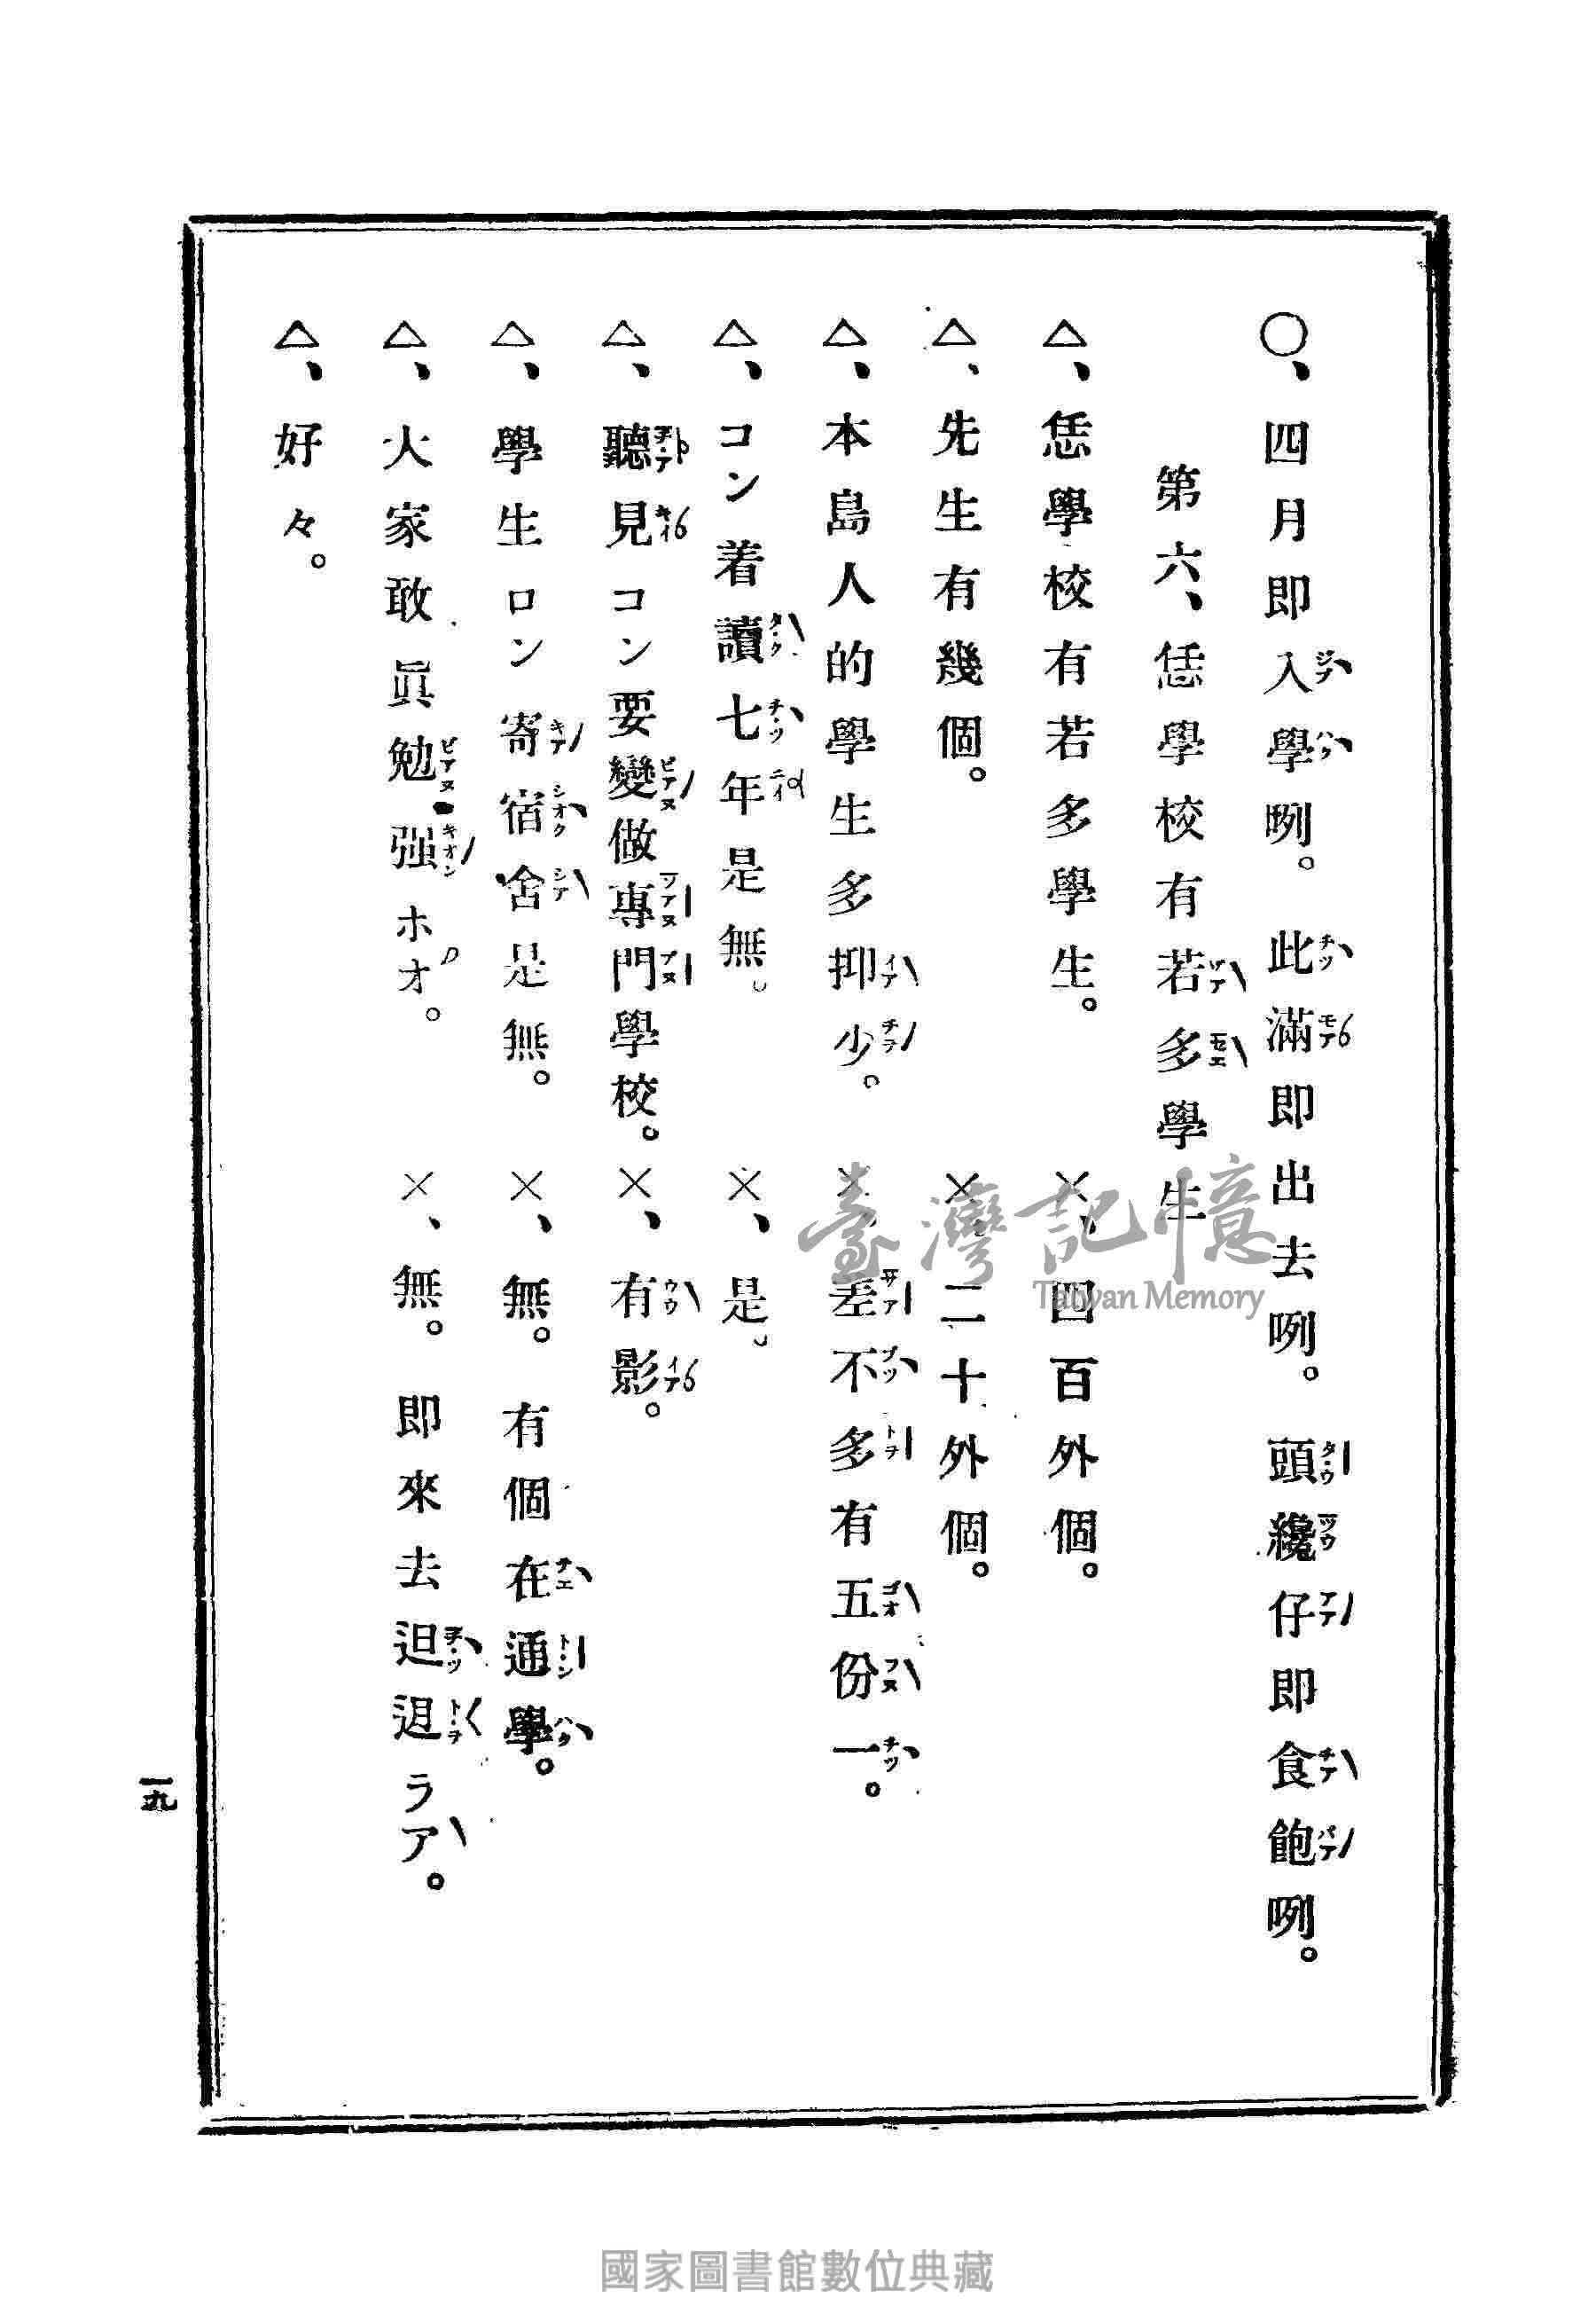 ○、四月即入學咧。此滿即出去咧。頭纔仔即食飽咧。
第六、恁學校有若多學生
△、恁學校有若多學生。 ×、四百外個。
△、先生有幾個。 ×、二十外個。
△、本島人的學生多抑少。 ×、差不多有五份一。
△、コン着讀七年是無。 ×、是。
△、聽見コン要變做專門學校。 ×、有影。
△、學生ロン寄宿舍是無。 ×、無。有個在通學。
△、大家敢眞勉强ホオ。 ×、無。即來去𨑨迌ラア。
△、好々。
一九
臺灣記憶
Taiwan Memory
國家圖書館數位典藏